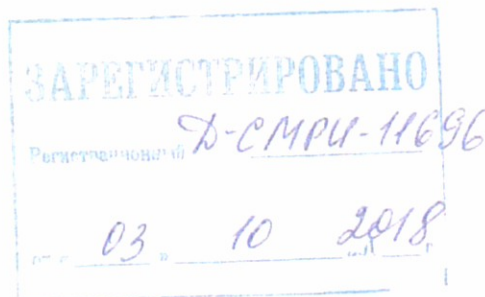 ЗАРЕГИСТРИРОВАНО
Регистрационный Д-СМРИ-11696
03 » 10 2018 г